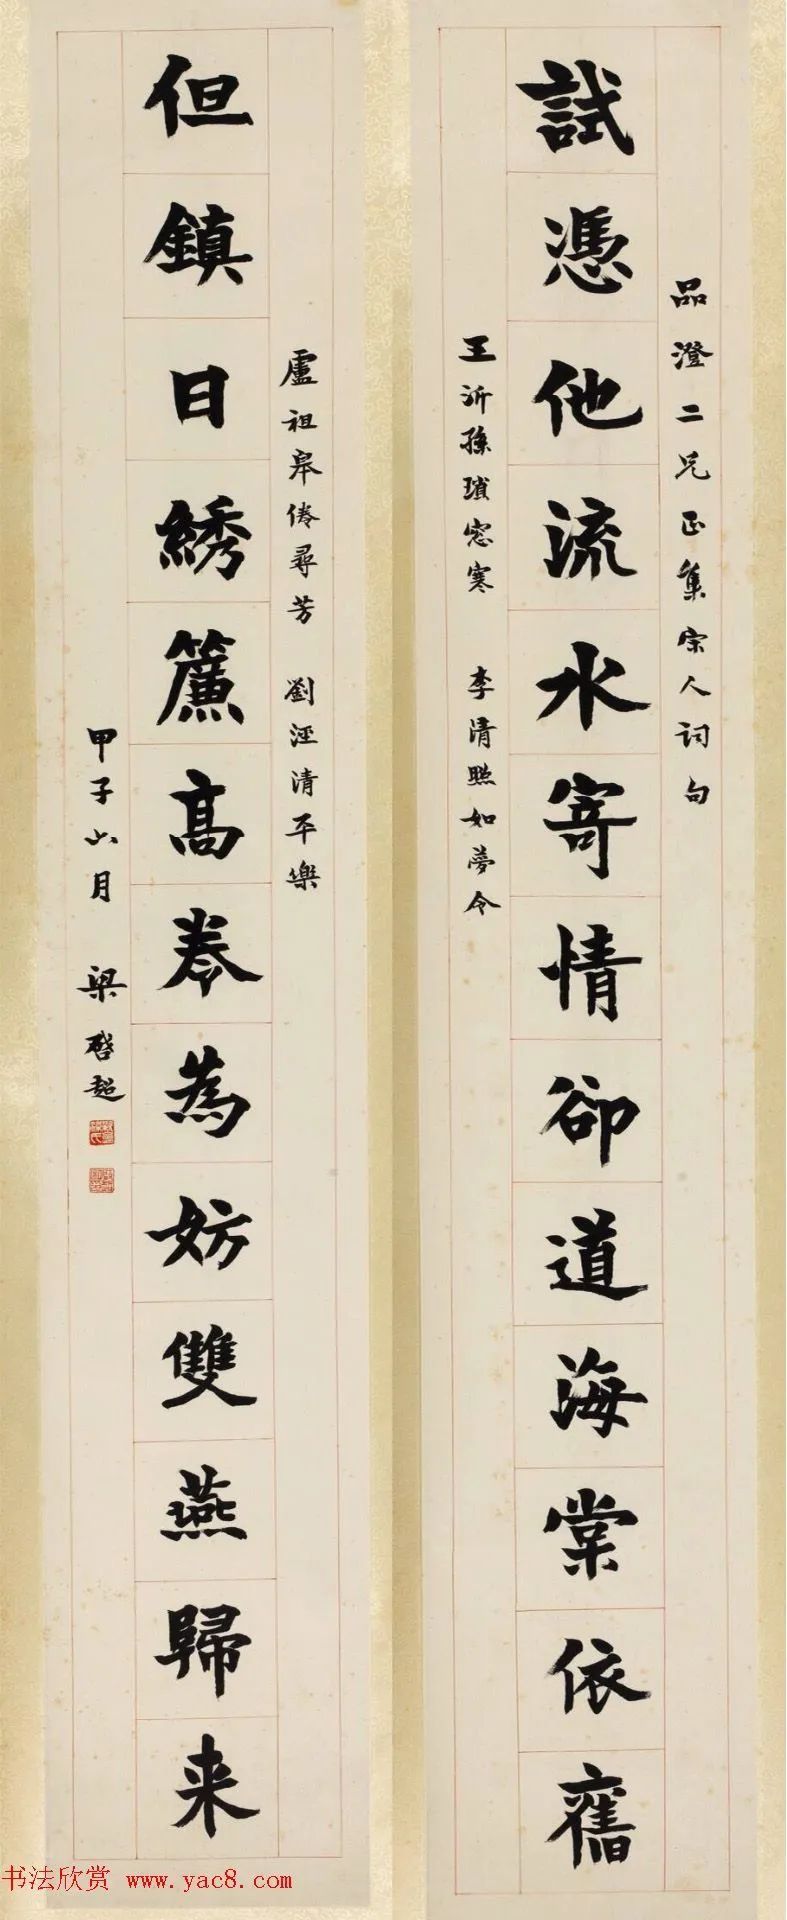 品澄二兄正集宋人詞句
試憑他流水寄情卻道海棠依舊
王沂孫瑣窗寒 李清照如夢令
盧祖皋倦尋芳 劉涇清平樂
但鎮日繡簾高卷為妨雙燕歸来
甲子六月 梁啓超
书法欣赏 www.yac8.com